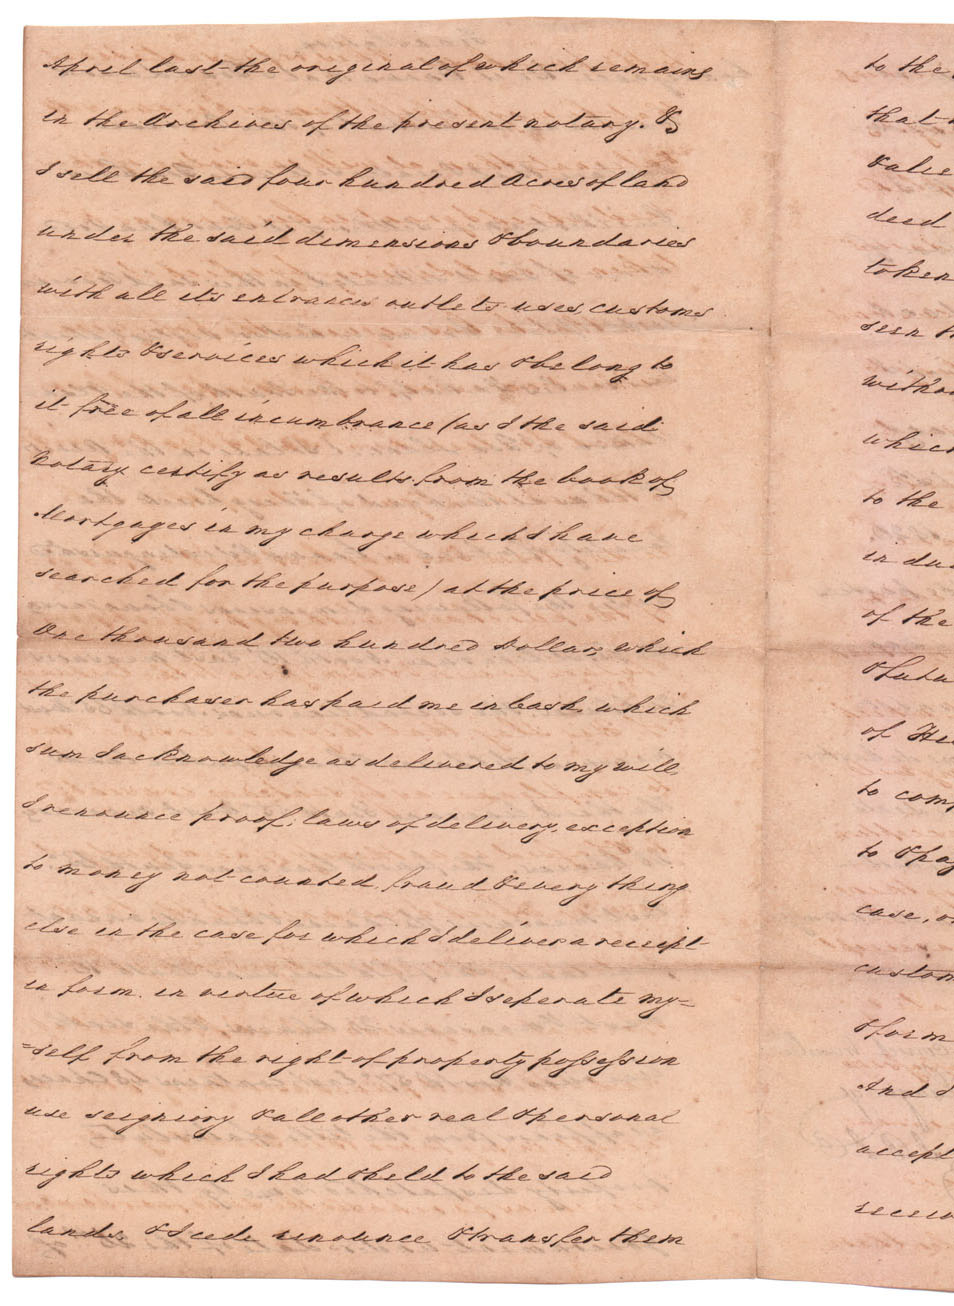 April last the original of which remains
in the Archives of the present notary. &
I sell the said four hundred Acres of land
under the said dimensions & boundaries
with all its entrances outlets uses customs
rights & services which it has & belong to
it free of all incumbrance (as I the said
Notary certify as results from the book of
Mortgages in my charge which I have
searched for the purpose) at the price of
One thousand two hundred Dollars, which
the purchaser has paid me in Cash, which
sum I acknowledge as delivered to my will,
I renounce proof, laws of delivery, exception
to money not counted, fraud & every thing
else in the case for which I deliver a receipt
in form. in virtue of which I seperate my=
=self from the right of property possession
use seigniory & all other real & personal
rights which I had & held to the said
lands. & I cede renounce & transfer them
to the
that
Value
deed
token
seen
which
to the
of the
of
to
to & pay
case, or
& form
And I
accept